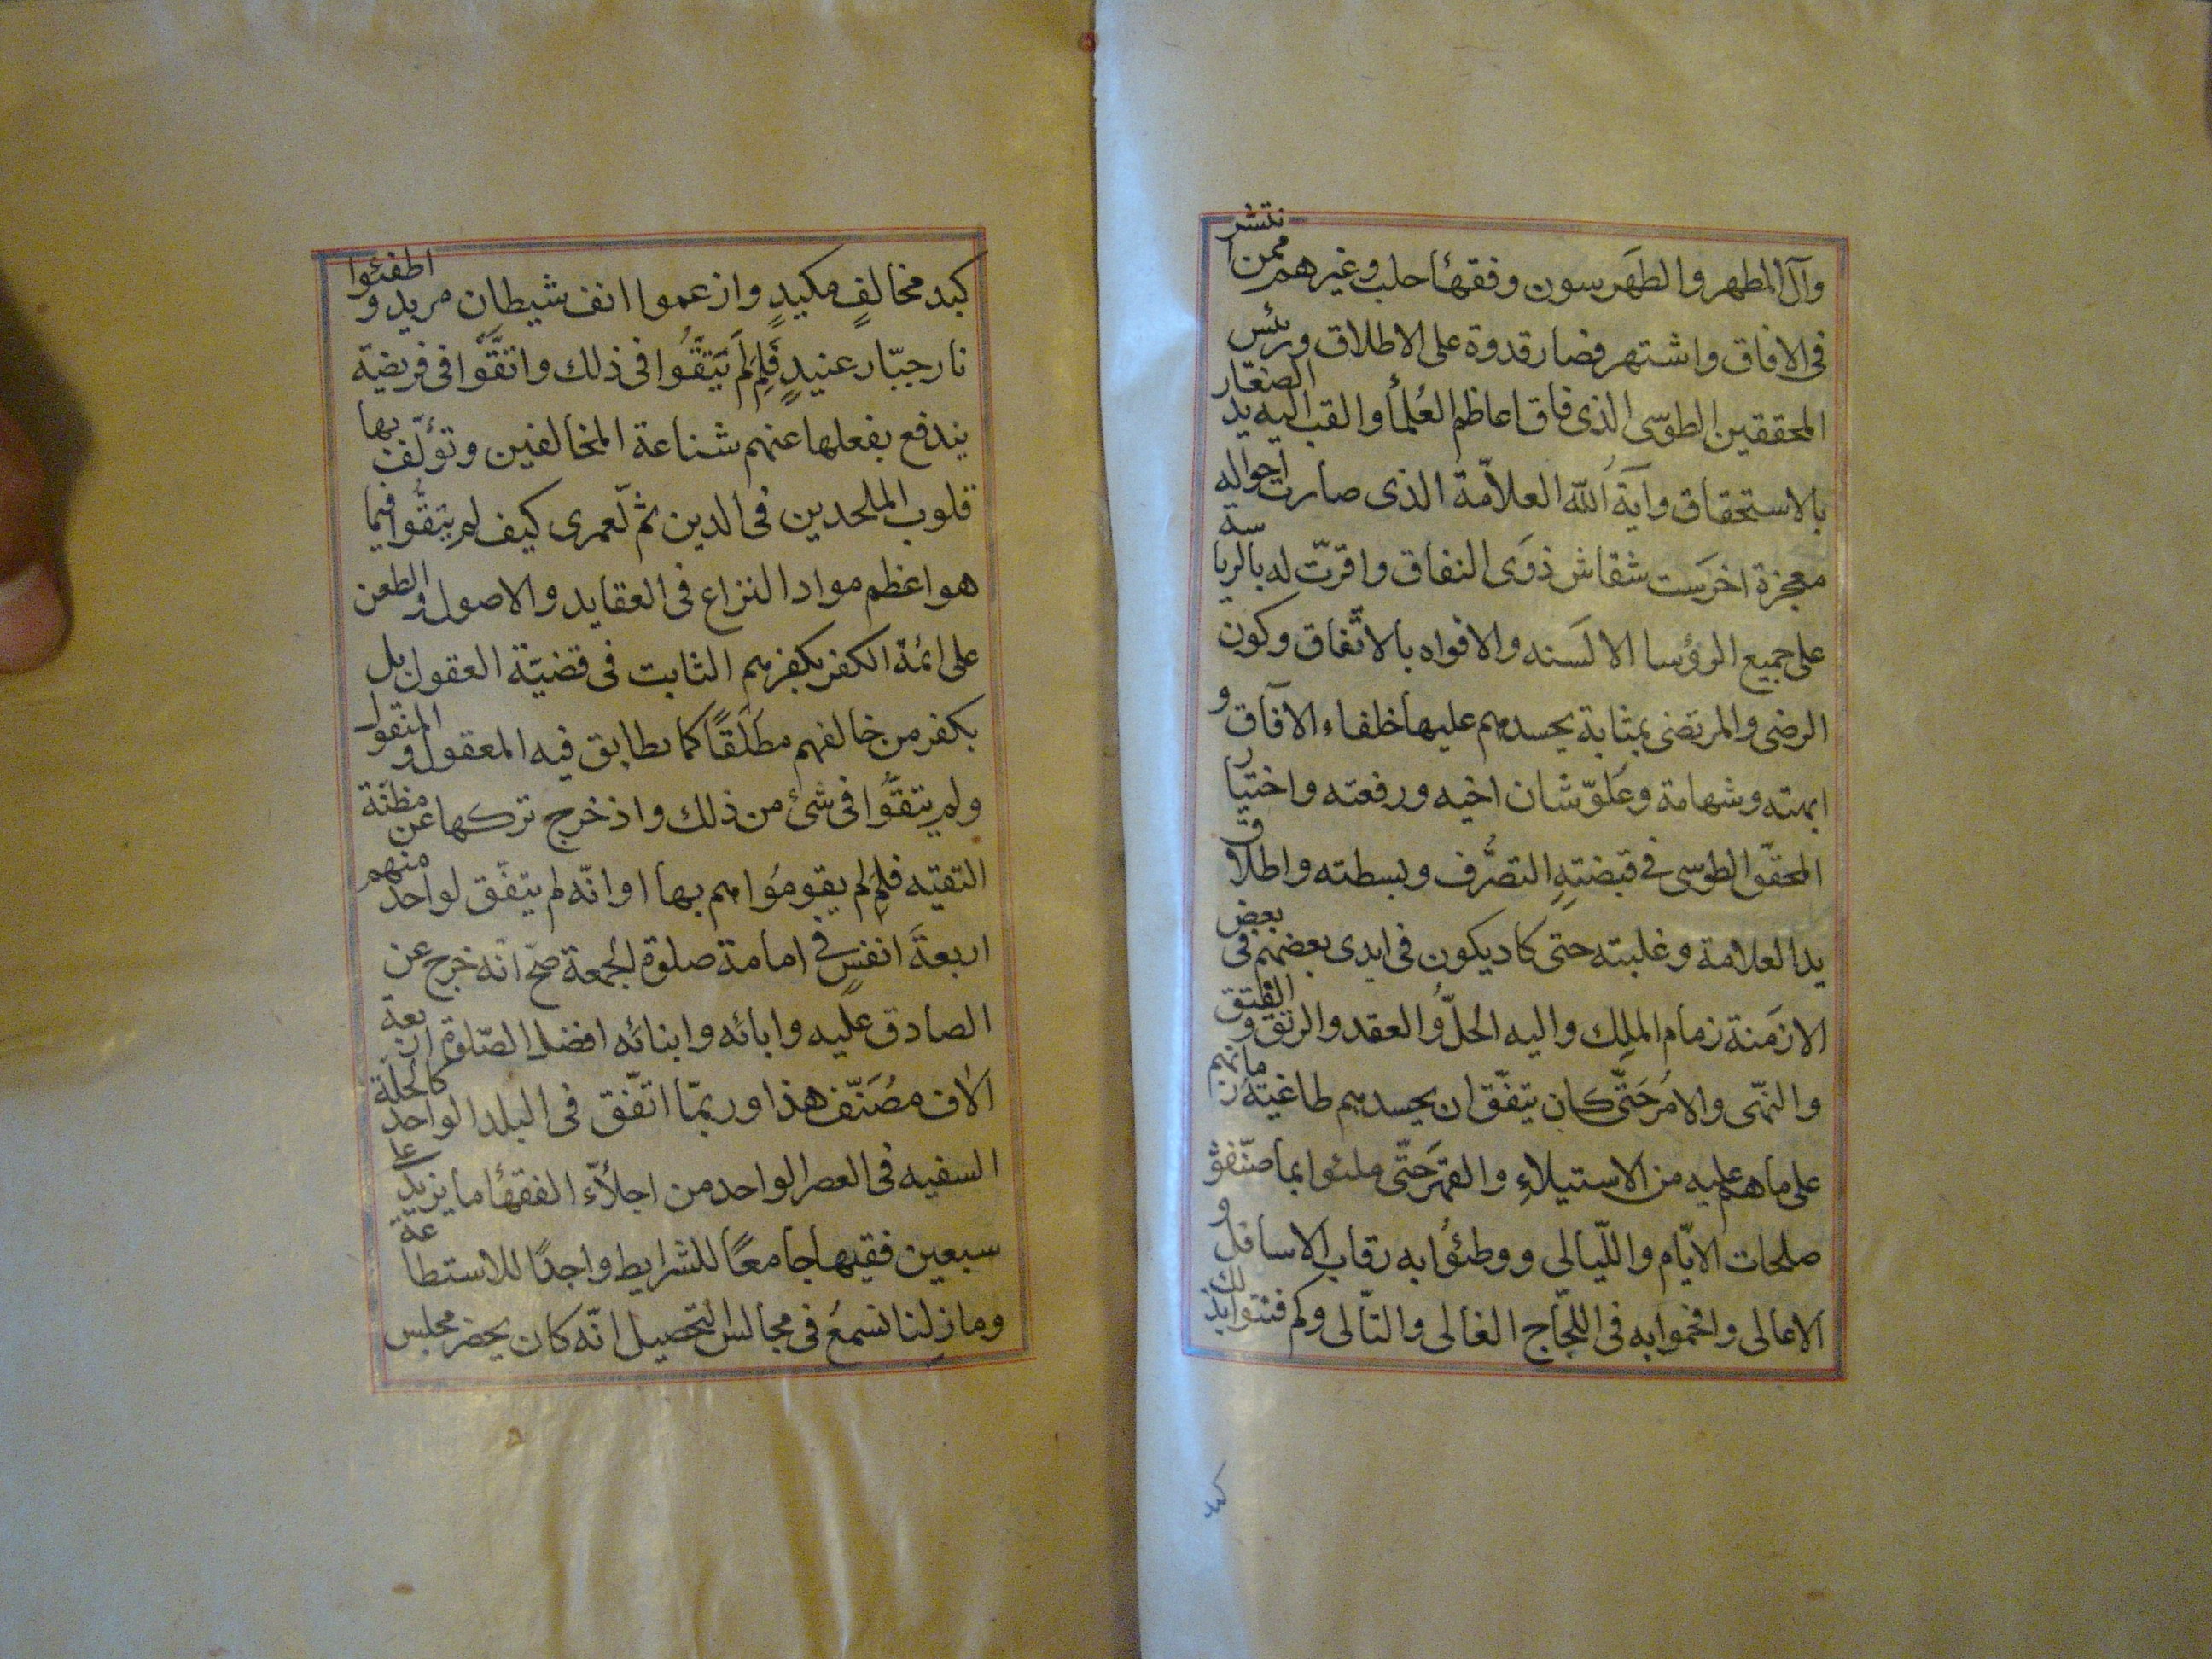 وآل المطهر والطهرسون وفقهأ حلب وغيرهم ممن انتشر
فى الافاق واشتهر فصار قدوة على الاطلاق ورئيس
المحققين الطوسى الذى فاق اعاظم العُلمأ والقب اليه يد الصغار
بالاستحقاق وآية اللّه العلاّمة الذى صارت احواله
معجزة اخرست شقاش ذوَى النفاق واقرّت له بالرياسة
على جميع الرؤسا الالَسنه والافواه بالاتّفاق وكون
الرضى والمرتضى بمثابة يحسدهم عليها خلفاء الآفاق و
ابهته وشهامة وعَلوّ شان اخيه ورفعته واختيار
المحقّق الطوسى فى قبضتهِ التصرُّف وبسطته واطلاق
يد العلامة وغلبته حتى كاد يكون فى ايدى بعضهم فى بعض
الازمَنة زمام الملِك واليه الحلّ والعقد والرتق و الفتق
والنهّى والامُر حَتّى كان يتفّق ان يحسدهم طاغية زمانهم
على ماهم عليه من الاستيلاءِ والقهَر حَتّى ملئوا بما صنّفوُ
صلحات الايّام واللّيالى ووطئوُا به رقاب الاسافل و
الاعالى وافحموا به فى اللّجاج الغالى والتّالى وكم فنتوا بذلك
كبد
كبد مخالفٍ مكيدٍ وازعموا انف شيطان مريد و اطفئوا
نار جبّار عنيدٍ فَلِمَ لَم يَتَقُّوا فى ذلك واتقَّوْا فى فريضة
يندفع بفعلها عنهم شناعة المخالفين وتؤلّف بها
قلوب الملحدين فى الدين ثمّ لَعمرى كيف لم يتقُّوا فيما
هو اعظم مواد النزاع فى العقايد والاصول والطعن
على ائمّة الكفر بكفرهم الثابت فى قضيّة العقول بل
بكفر من خالفهم مطلَقًا كما يطابق فيه المعقول و المنقول
ولم يتقُّوا فى شئ من ذلك واذ خرج تركها عن مظنّة
التقيّه فلِمَ لم يقومُوا هم بها او انّه لم يتفّق لواحد منهم
اربعةَ انفسٍ فى امامة صلوة الجمعة صحّ انّه خرج عن
الصادق عليه وابائه وابنائه افضل الصّلوة اربعة
الاف مصَنّف هذا وربمّا اتفّق فى البلد الواحد كالحلّة
السفيه فى العصر الواحد من اجلاّء الفقهأ ما يزيد على
سبعين فقيها جامعًا للشرايط واجدًا للاستطاعة
وما زِلنا نسمعُ فى مجالس التحصيل انّه كان يحضر مجلس